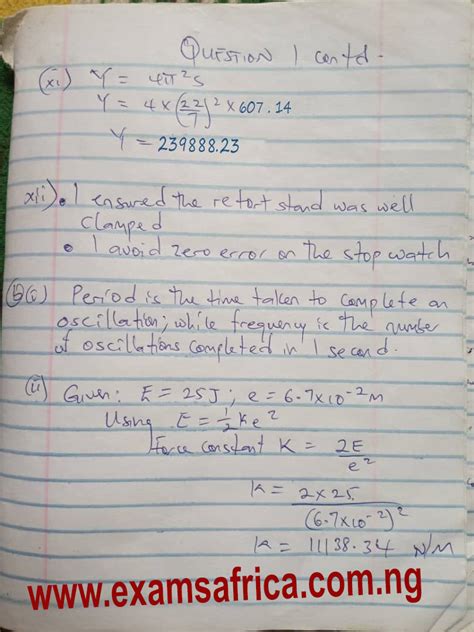 QUESTION 1 contd.
(xi) Y = 4π²s
Y = 4 × (22/7)² × 607.14
Y = 239888.23
xii). • I ensured the retort stand was well
clamped
• I avoid zero error on the stop watch
(b)(i) Period is the time taken to complete an
oscillation; while frequency is the number
of oscillations completed in 1 second.
(ii) Given: E = 25J; e = 6.7×10⁻²M
Using E = ½ke²
Force constant K = 2E/e²
K = 2×25/(6.7×10⁻²)²
K = 11138.34 N/M
www.examsafrica.com.ng